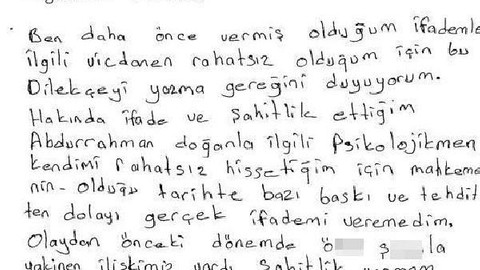 Ben daha önce vermiş olduğum ifademle
ilgili vicdanen rahatsız olduğum için bu
Dilekçeyi yazma gereğini duyuyorum.
Hakında ifade ve şahitlik ettiğim
Abdurrahman doğanla ilgili Psikolojikmen
kendimi rahatsız hissetiğim için mahkeme
nin- olduğu tarihte bazı baskı ve tehdit
ten dolayı gerçek ifademi veremedim.
Olaydan önceki dönemde ö ş la
yakinen ilişkimiz vardı şahitlik